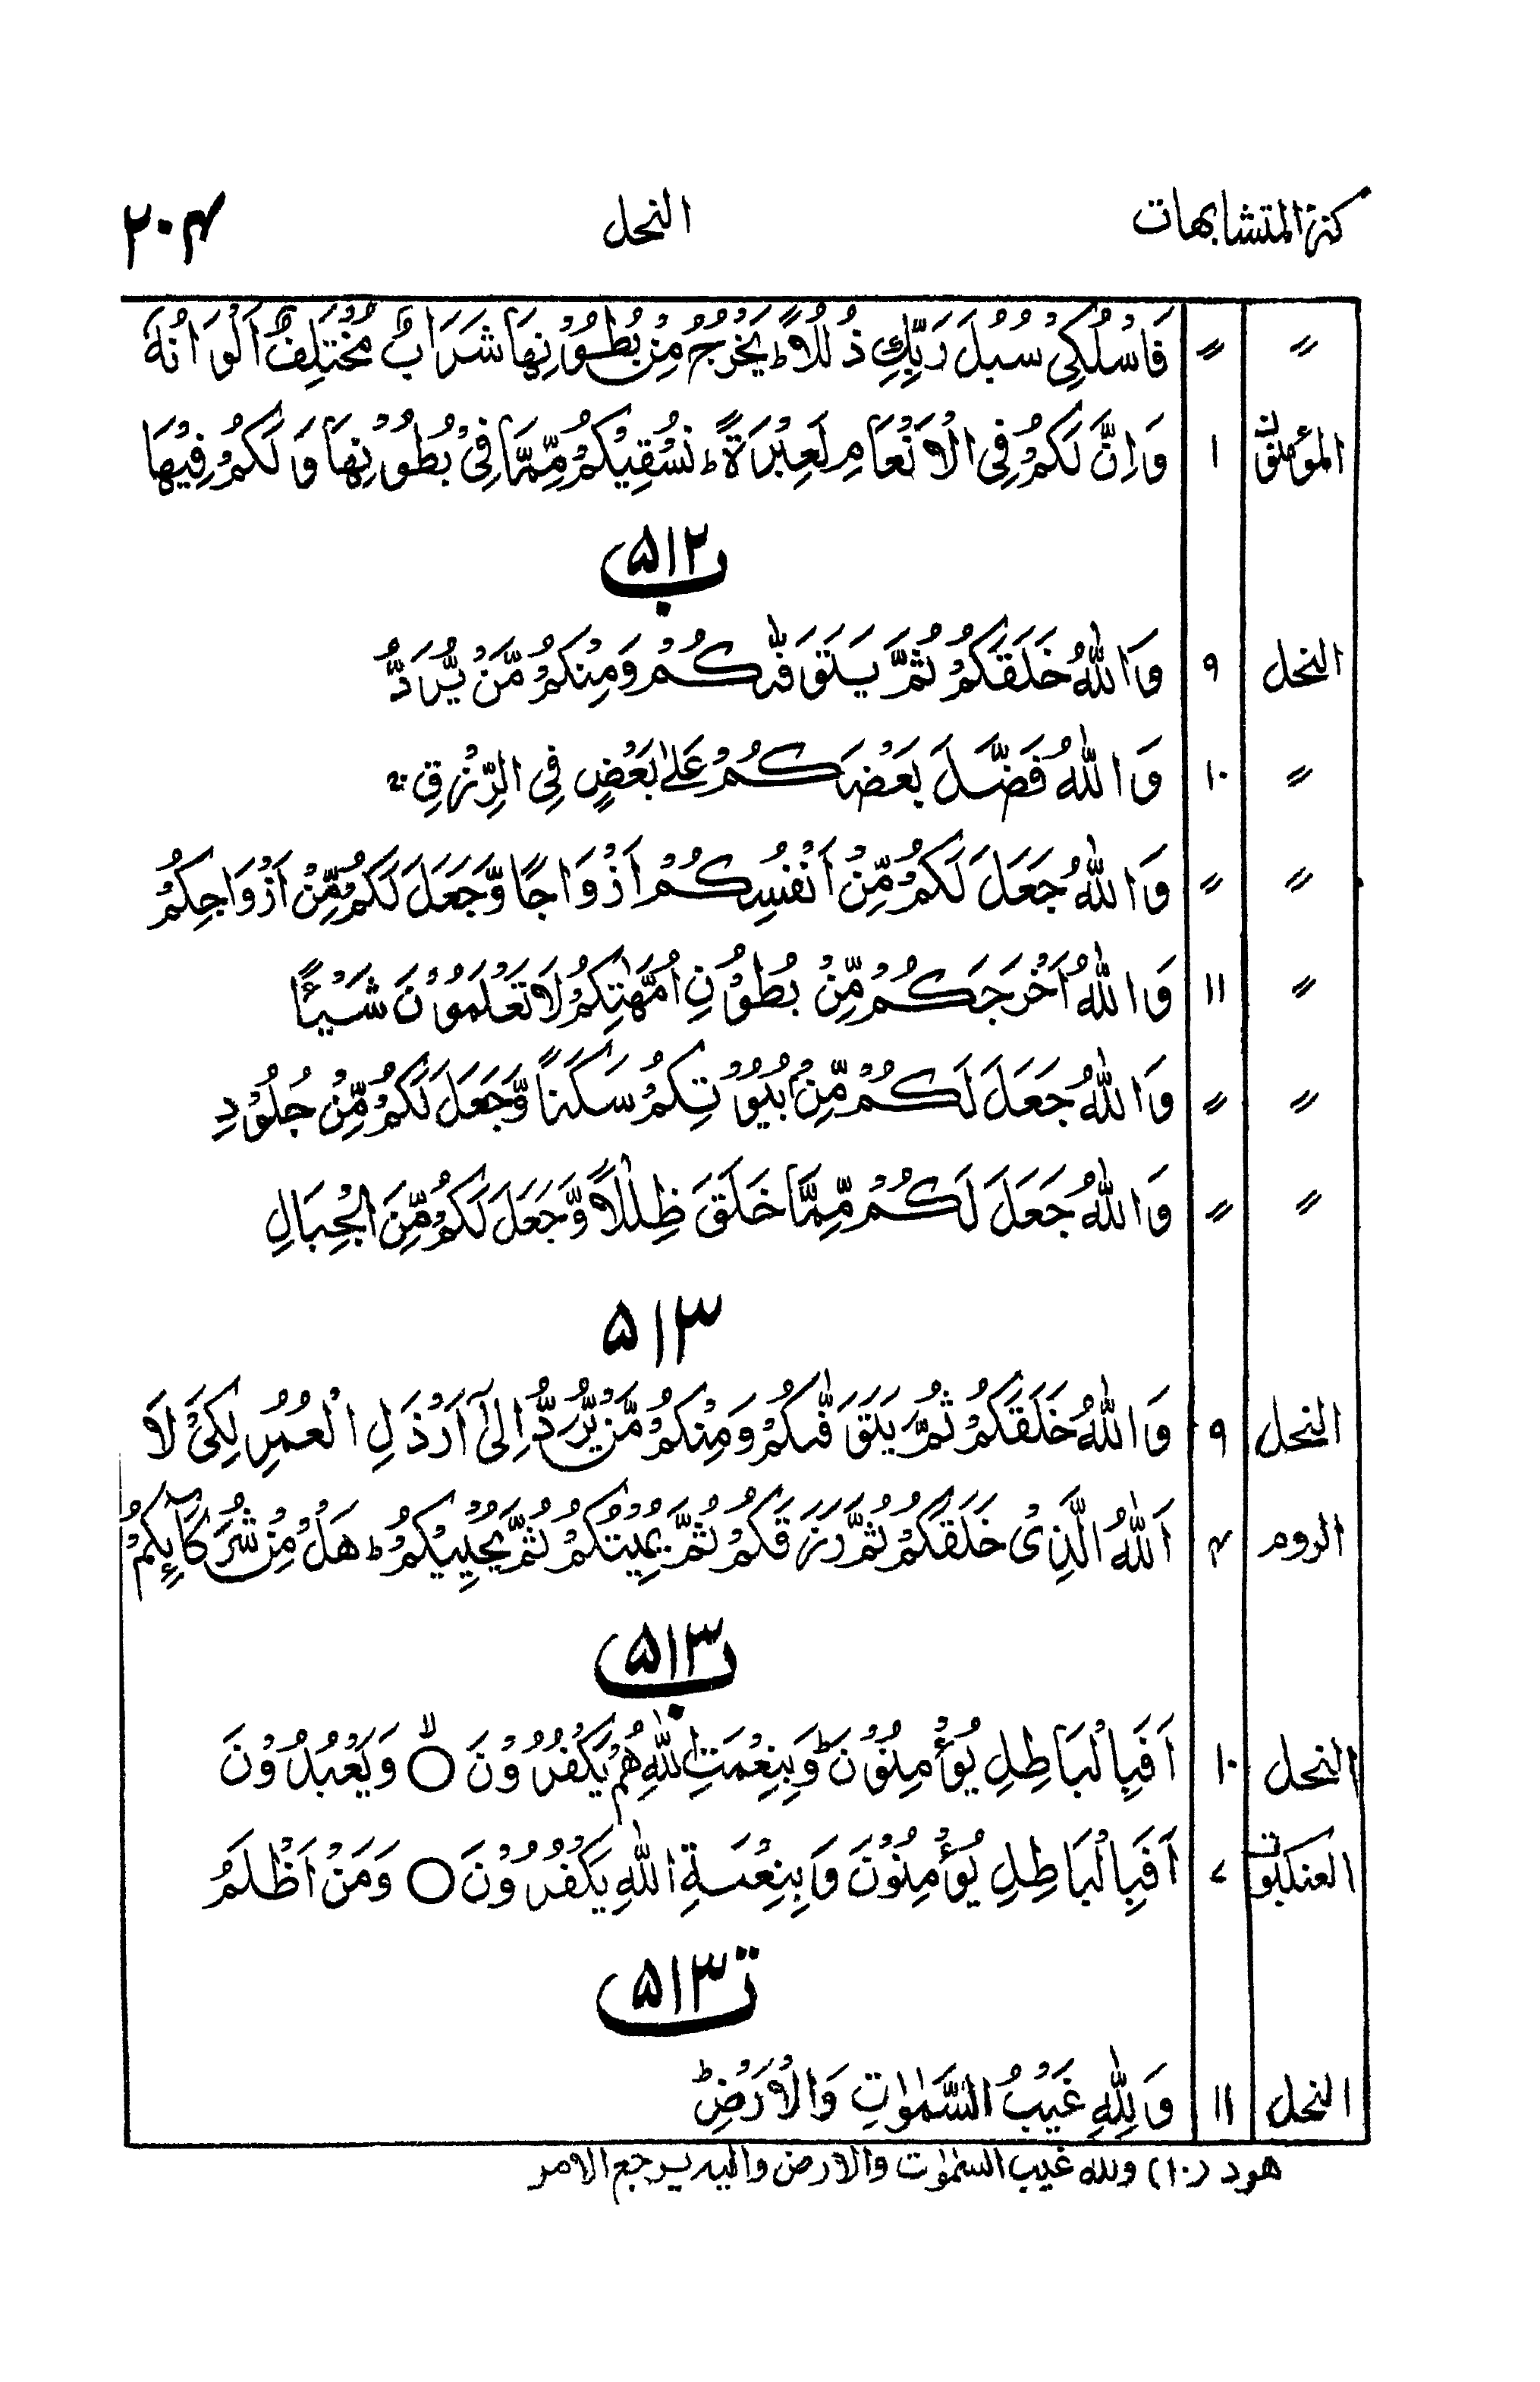 كنز المتشابهات النحل ٢٠۴
〃 〃 فَاسْلُكِىْ سُبُلَ رَبِّكِ ذُلُلًا ؕ يَخْرُجُ مِنْۢ بُطُوْنِهَا شَرَابٌ مُّخْتَلِفٌ اَلْوَانُهٗ
المؤمنون ١ وَاِنَّ لَكُمْ فِى الْاَنْعَامِ لَعِبْرَةً ؕ نُسْقِيْكُمْ مِّمَّا فِىْ بُطُوْنِهَا وَلَكُمْ فِيْهَا
۵۱۲ ب
النحل ۹ وَاللّٰهُ خَلَقَكُمْ ثُمَّ يَتَوَفّٰىكُمْ وَمِنْكُمْ مَّنْ يُّرَدُّ
〃 ۱۰ وَاللّٰهُ فَضَّلَ بَعْضَكُمْ عَلٰى بَعْضٍ فِى الرِّزْقِ ۚ
〃 〃 وَاللّٰهُ جَعَلَ لَكُمْ مِّنْ اَنْفُسِكُمْ اَزْوَاجًا وَّجَعَلَ لَكُمْ مِّنْ اَزْوَاجِكُمْ
〃 ۱۱ وَاللّٰهُ اَخْرَجَكُمْ مِّنْۢ بُطُوْنِ اُمَّهٰتِكُمْ لَا تَعْلَمُوْنَ شَيْـًٔا
〃 〃 وَاللّٰهُ جَعَلَ لَكُمْ مِّنْۢ بُيُوْتِكُمْ سَكَنًا وَّجَعَلَ لَكُمْ مِّنْ جُلُوْدِ
〃 〃 وَاللّٰهُ جَعَلَ لَكُمْ مِّمَّا خَلَقَ ظِلٰلًا وَّجَعَلَ لَكُمْ مِّنَ الْجِبَالِ
۵۱۳
النحل ۹ وَاللّٰهُ خَلَقَكُمْ ثُمَّ يَتَوَفّٰىكُمْ وَمِنْكُمْ مَّنْ يُّرَدُّ اِلٰٓى اَرْذَلِ الْعُمُرِ لِكَىْ لَا
الروم ۴ اَللّٰهُ الَّذِىْ خَلَقَكُمْ ثُمَّ رَزَقَكُمْ ثُمَّ يُمِيْتُكُمْ ثُمَّ يُحْيِيْكُمْ ؕ هَلْ مِنْ شُرَكَآئِكُمْ
۵۱۳ ب
النحل ۱۰ اَفَبِالْبَاطِلِ يُؤْمِنُوْنَ وَبِنِعْمَتِ اللّٰهِ هُمْ يَكْفُرُوْنَ ○ۙ وَيَعْبُدُوْنَ
العنكبوت ۷ اَفَبِالْبَاطِلِ يُؤْمِنُوْنَ وَبِنِعْمَةِ اللّٰهِ يَكْفُرُوْنَ ○ وَمَنْ اَظْلَمُ
۵۱۳ ت
النحل ۱۱ وَلِلّٰهِ غَيْبُ السَّمٰوٰتِ وَالْاَرْضِ ؕ
هود (۱۰) ولله غيب السمٰوٰت والارض واليه يرجع الامر